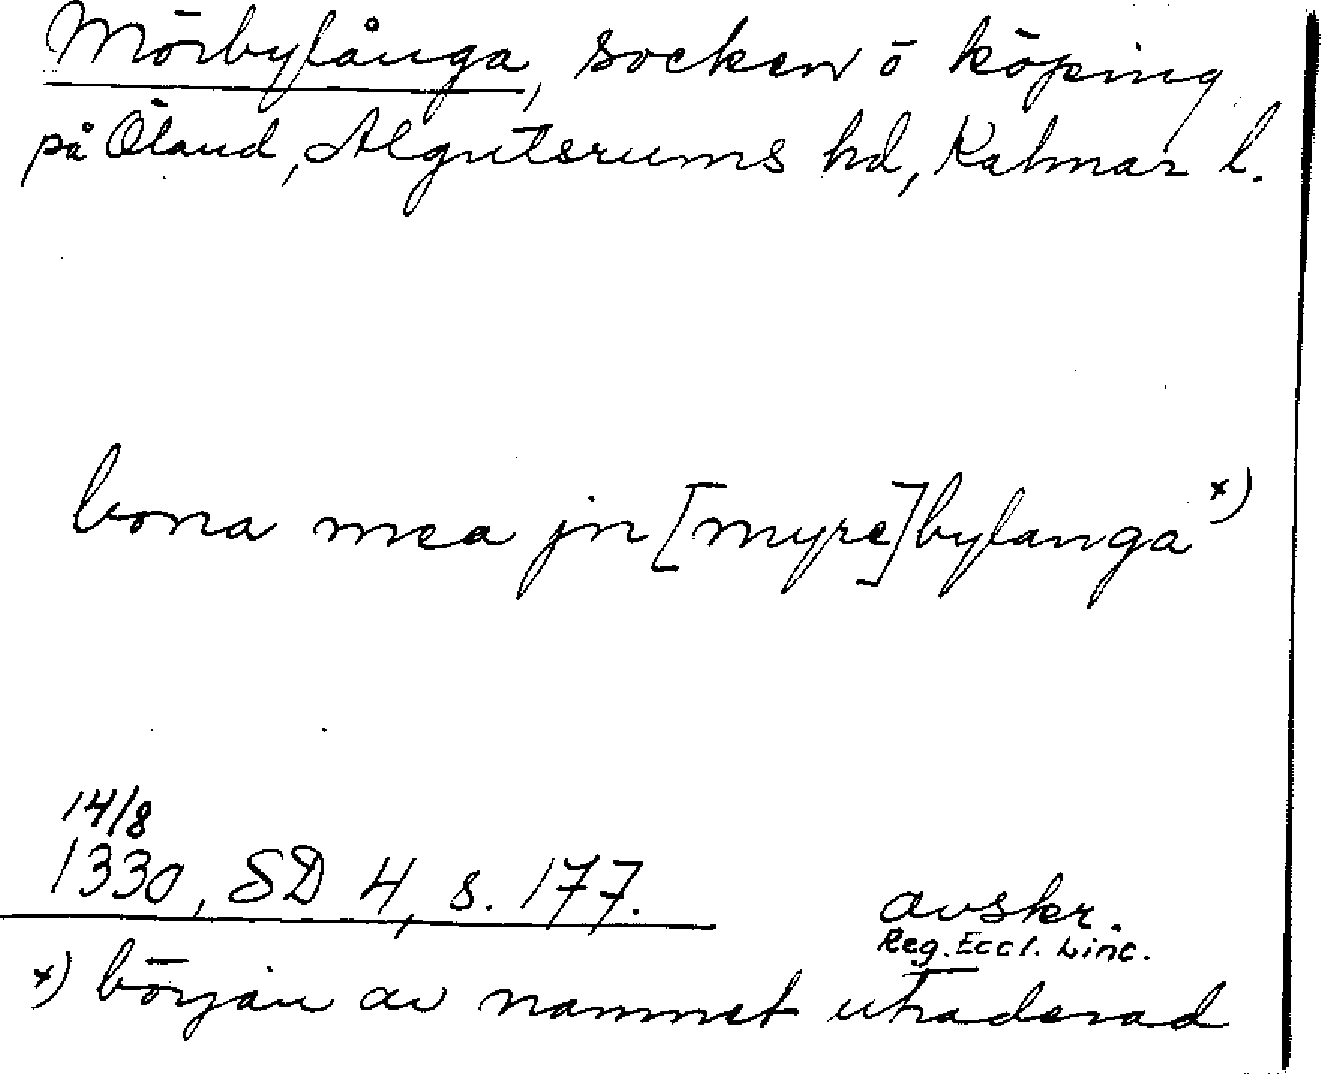 Mörbylånga, socken o köping
på Öland, Algutsrums hd, Kalmar l.
bona mea jn [myre]bylanga x)
14/8
1330, SD 4, s. 177.
avskr.
Reg. Eccl. Linc.
x) början av namnet utraderad